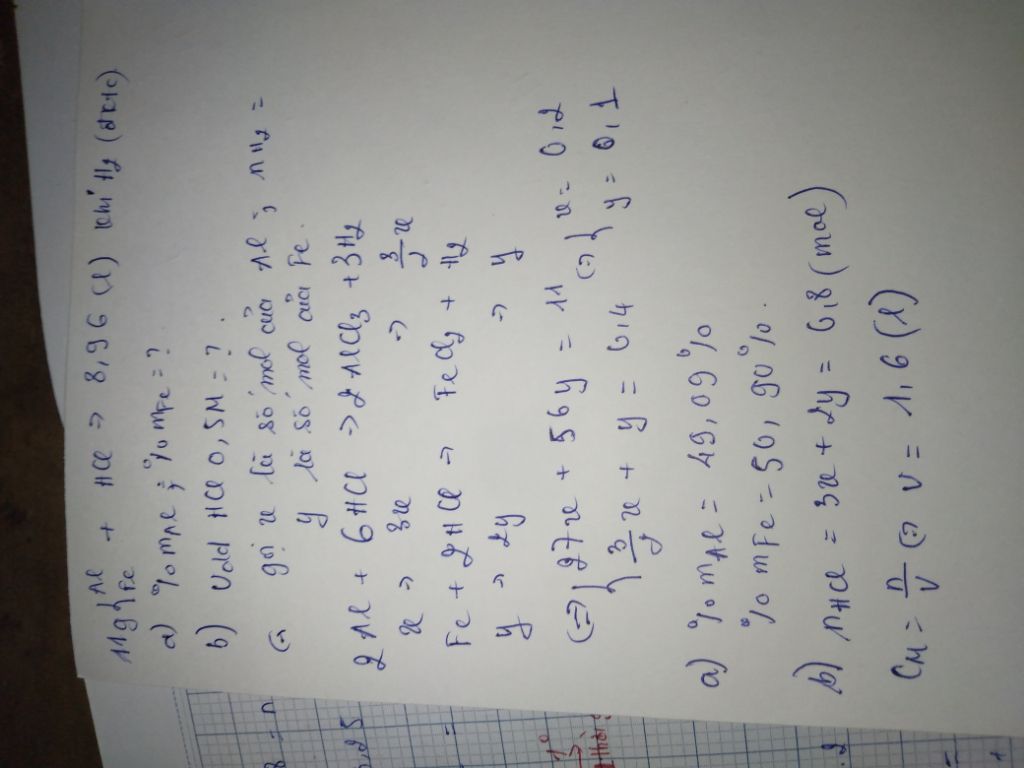 11g { Al Fe + HCl => 8,96 (l) khí H2 (đktc)
a) %mAl ; %mFe = ?
b) Vdd HCl 0,5M = ?
gọi x là số mol của Al ; nH2 =
y là số mol của Fe.
2Al + 6HCl => 2AlCl3 + 3H2
x => 3x => 3/2 x
Fe + 2HCl => FeCl2 + H2
y => 2y => y
(=>) { 27x + 56y = 11 (=>) { x = 0,2
3/2 x + y = 0,4 y = 0,1
a) %mAl = 49,09%
%mFe = 50,90%.
b) nHCl = 3x + 2y = 0,8 (mol)
CM = n/V (=> V = 1,6 (l)